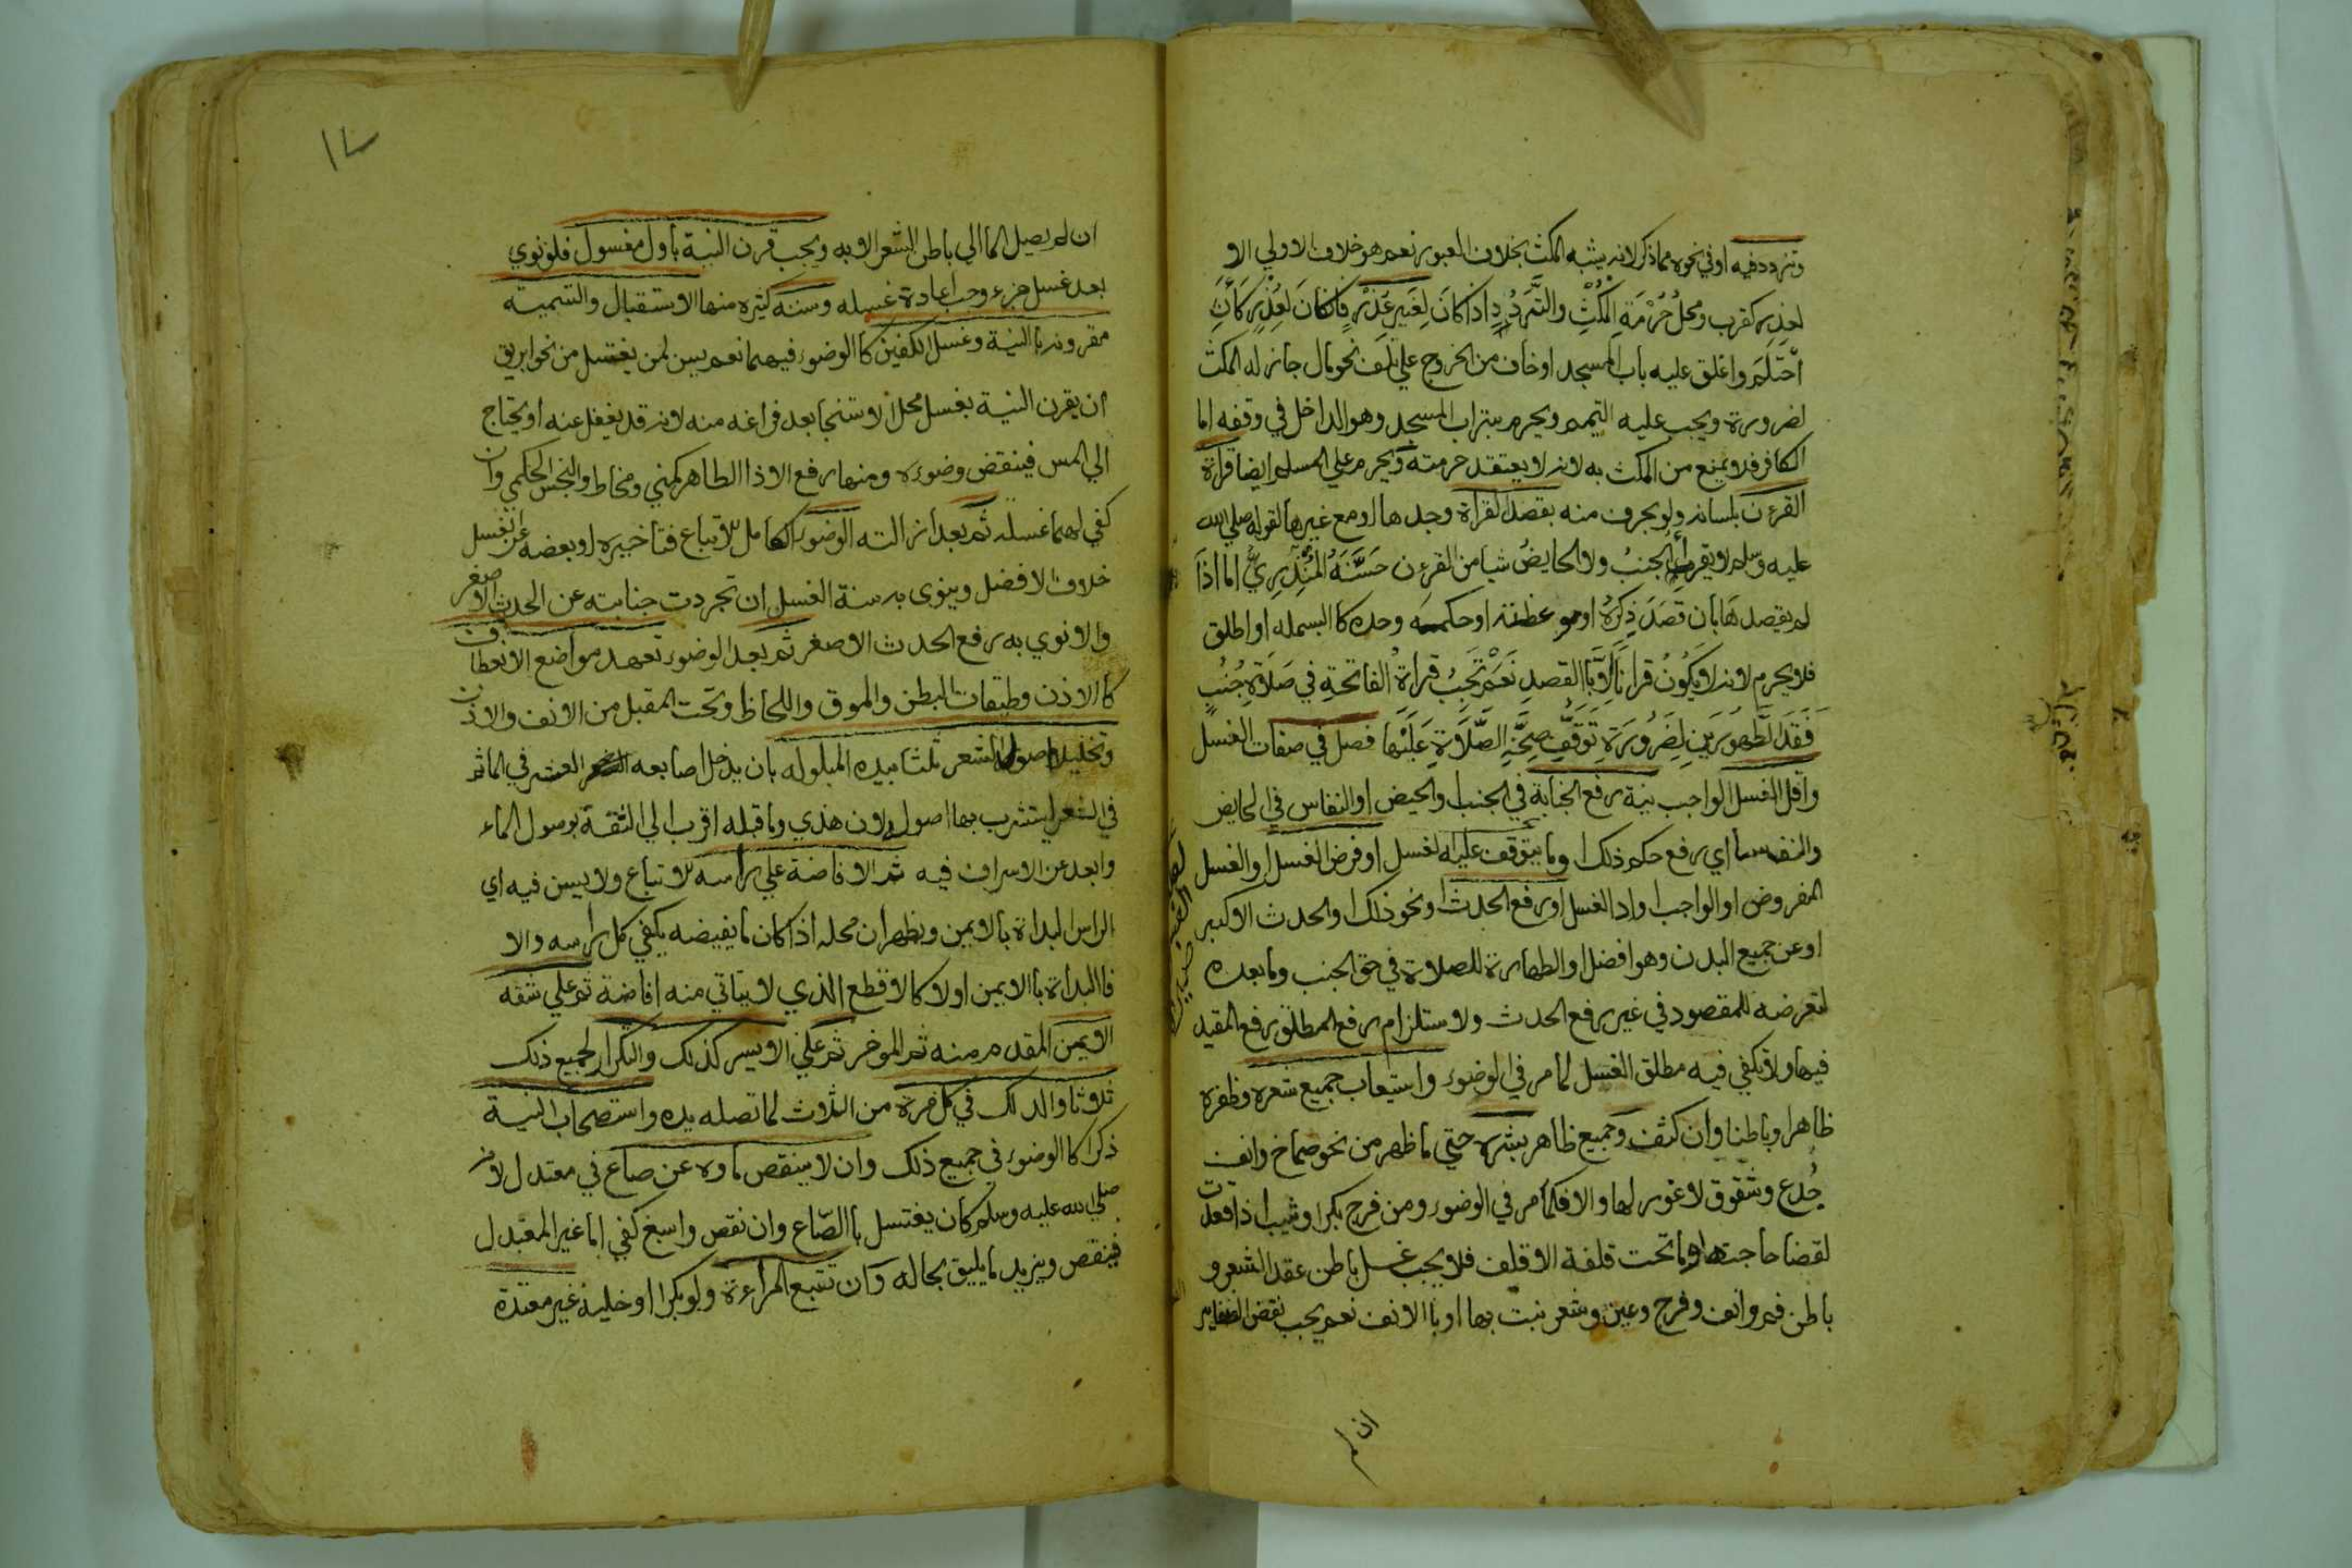 وتردد فيه او في نحوه مما ذكر لانه يشبه المكث بخلاف العبور نعم هو خلاف الاولي الا
لعذر كقرب ومحلُ حُرْمَةِ المُكْثِ والتَّرَدُدِ اذا كانَ لِغَيرِ عَذْرٍ فانكانَ لعُذْرٍ كَأنِ
احْتَلَمَ واغلق عليه باب المسجد اوخاف من الخروج علي تلف نحو مال جاز له المكث
لضرورة ويجب عليه التيمم ويحرم بتراب المسجد وهو الداخل في وقفه اما
الكافر فلا يمنع من المكث به لانه لا يعتقد حرمته ويحرم علي المسلم ايضا قراة
القرءن بلسانه ولو بحرف منه بقصد القراة وحدها او مع غيرها لقوله صلي الله
عليه وسلم لا يقرا الجنبُ ولا الحايضُ شيا من القرءن حَسَّنَهُ المُنْذِرِيُّ اما اذَا
لم يقصدهَا بأن قَصَدَ ذِكرَهُ او موعظته او حكمه وحده كا البسمله او اطلق
فلا يحرم لانه لا يكُونُ قرانًا اِلَّا بَا القصدِ نَعَمْ تَجِبُ قراةُ الفاتحةِ في صَلَاةِ جُنُبٍ
فَقَدَ الطَّهُورَينِ لِضَرُورَةِ تَوَقُّفِ صِحَّةِ الصَّلَاةِ عَلَيْها فصل في صفات الغسل
واقل الغسل الواجب نية رفع الجنابة في الجنب او الحيض او النفاس في الحايض
والنفسا اي رفع حكم ذلك او ما يتوقف عليه الغسل او فرض الغسل او الغسل
المفروض او الواجب او ادا الغسل او رفع الحدث ونحو ذلك او الحدث الاكبر
او عن جميع البدن وهو افضل او الطهارة للصلاة في حق الجنب وما بعده
لتعرضه للمقصود في غير رفع الحدث ولاستلزام رفع المطلق رفع المقيد
فيها ولا تكفي فيه مطلق الغسل لما مر في الوضوء واستيعاب جميع شعره وظفره
ظاهرا وباطنا وان كثف وجميع ظاهر بشره حتي ما ظهر من نحو صماخ وانف
جُدع وشقوق لا غور لها والا فكما مر في الوضوء ومن فرج بكر او ثيب اذا قعدت
لقضا حاجتها وما تحت قلفة الاقلف فلا يجب غسل باطن عقد الشعر و
باطن فم وانف وفرج وعين وشعر نبت بها او با الانف نعم يجب نقض الظفاير
ان لم
ان لم يصل الما الي باطن الشعر الا به ويجب قرن النية باول مغسول فلو نوي
بعد غسل جزء وجب اعادة غسله وسننه كثيره منها الاستقبال والتسمية
مقرونه با النية وغسل الكفين كا الوضوء فيهما نعم يسن لمن يغتسل من نحو ابريق
ان يقرن النية بغسل محل الاستنجا بعد فراغه منه لانه قد يغفل عنه او يحتاج
الي المس فينقض وضوءه ومنها رفع الاذا الطاهر كمني ومخاط والنجس الحكمي وان
كفي لهما غسله ثم بعد ازالته الوضوء الكامل للاتباع فتاخيره او بعضه عن الغسل
خلاف الافضل وينوى به سنة الغسل ان تجردت جنابته عن الحدث الاصغر
والا نوي به رفع الحدث الاصغر ثم بعد الوضوء تعهد مواضع الانعطاف
كا الاذن وطبقات البطن والموق واللحاظ وتحت المقبل من الانف والاذن
وتخليل اصول الشعر ثلثا بيده المبلوله بان يدخل اصابعه العشر في الما ثم
في الشعر ليتشرب بها اصوله لان هذي وما قبله اقرب الي الثقة بوصول الماء
وابعد عن الاسراف فيه ثم الافاضة علي راسه للاتباع ولا يسن فيه اي
الراس البداة بالايمن ويظهر ان محله اذا كان ما يفيضه يكفي كل راسه والا
فا البداة با الايمن اولا كا لاقطع الذي لا يتاتي منه افاضة ثم علي شقه
الايمن المقدم منه ثم الموخر ثم علي الايسر كذلك والتكرار لجميع ذلك
ثلاثا والدلك في كل مرة من الثلاث لما تصله يده واستصحاب النية
ذكرا كا الوضوء في جميع ذلك وان لا ينقص ماوه عن صاع في معتدل لانه
صلي الله عليه وسلم كان يغتسل با الصّاع وان نقص واسبغ كفي اما غير المعتدل
فينقص ويزيد ما يليق بحاله وان تتبع المراءة ولو بكرا او خلية غير معتدة